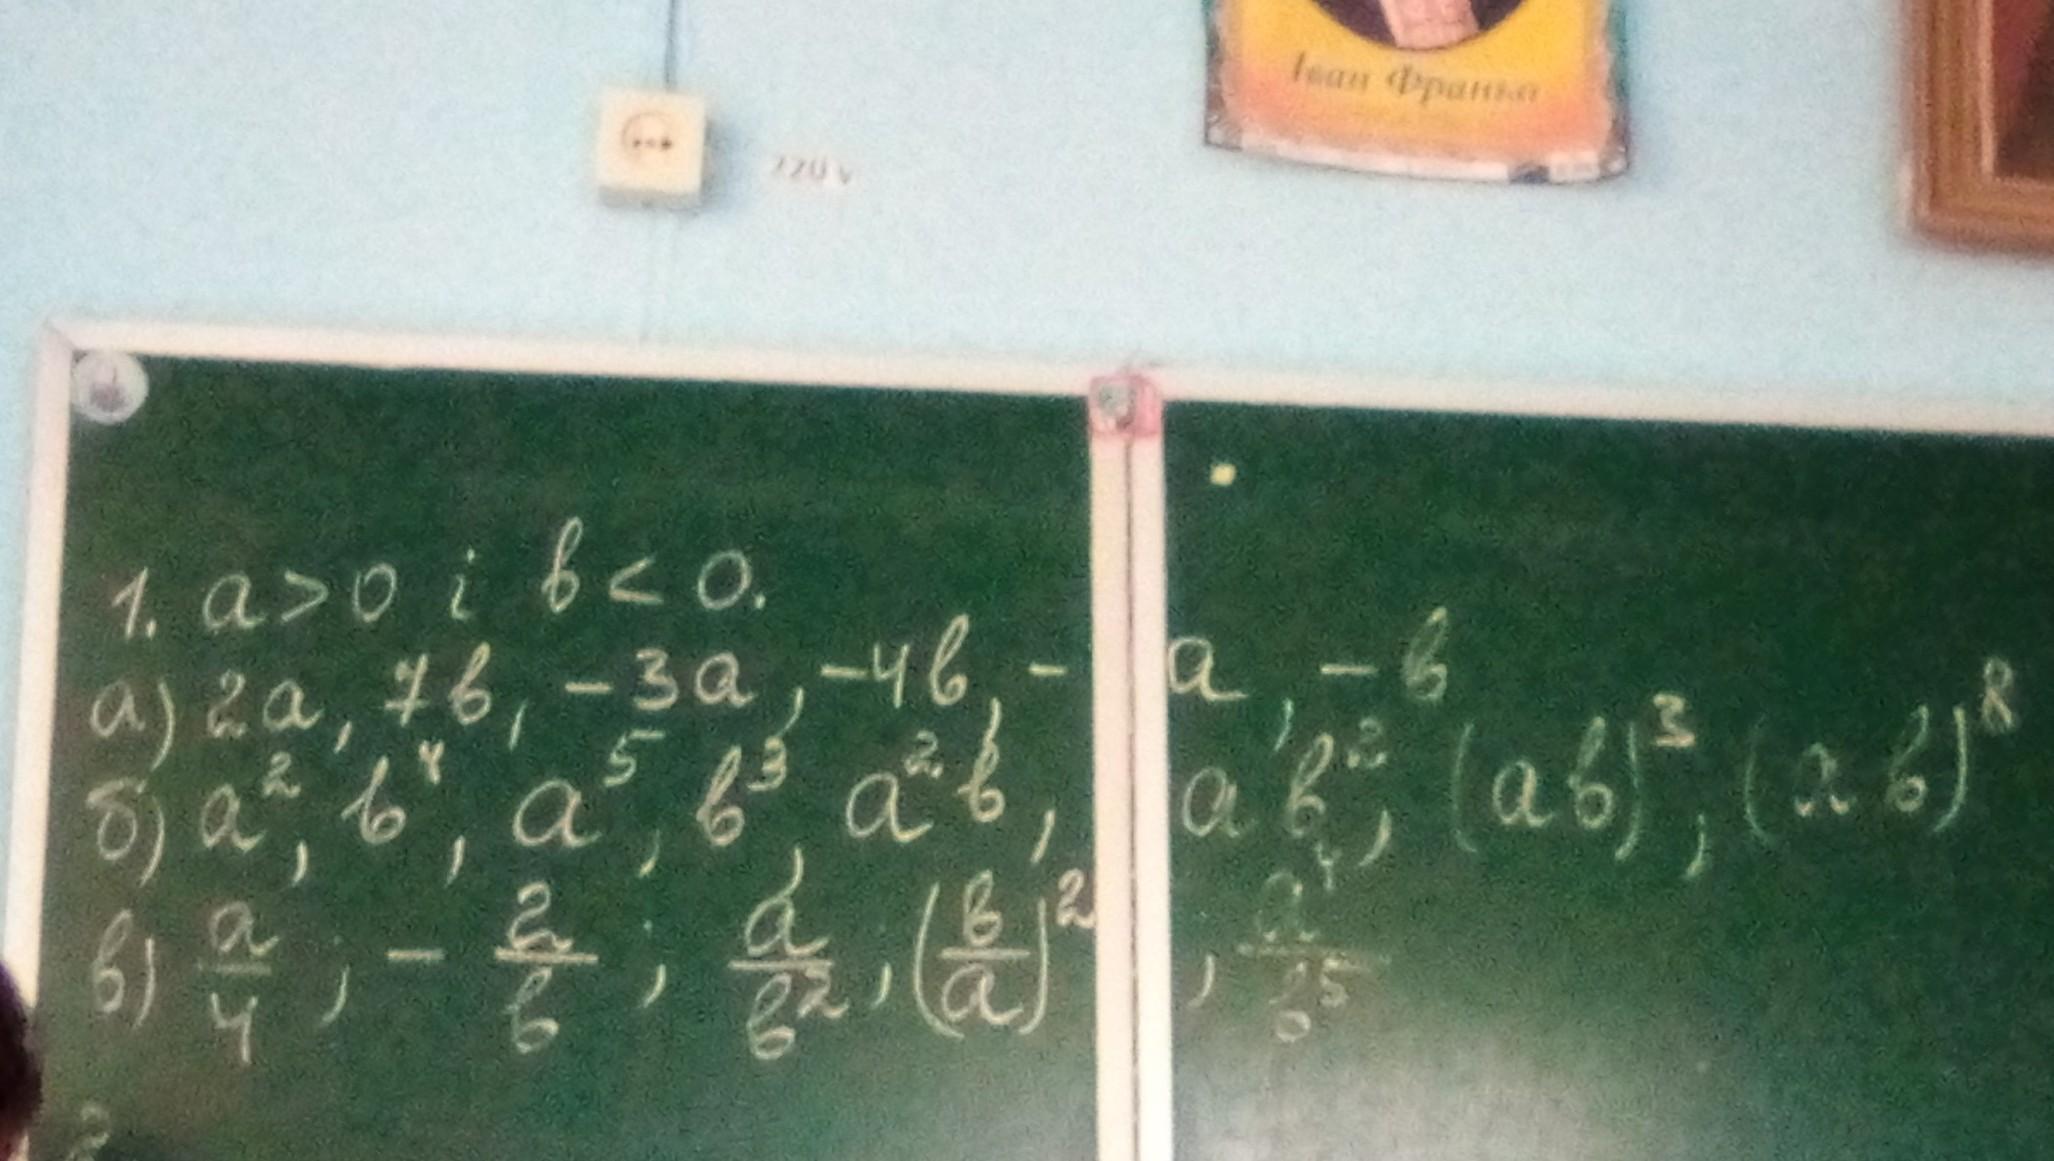 Іван Франко
220 v
1. a > 0 і b < 0.
а) 2a, 7b, -3a, -4b, -a, -b
б) a², b⁴, a⁵, b³, a²b, ab², (ab)³, (ab)⁸
в) a/4; -2/b; a/b², (b/a)², a⁴/b⁵
2